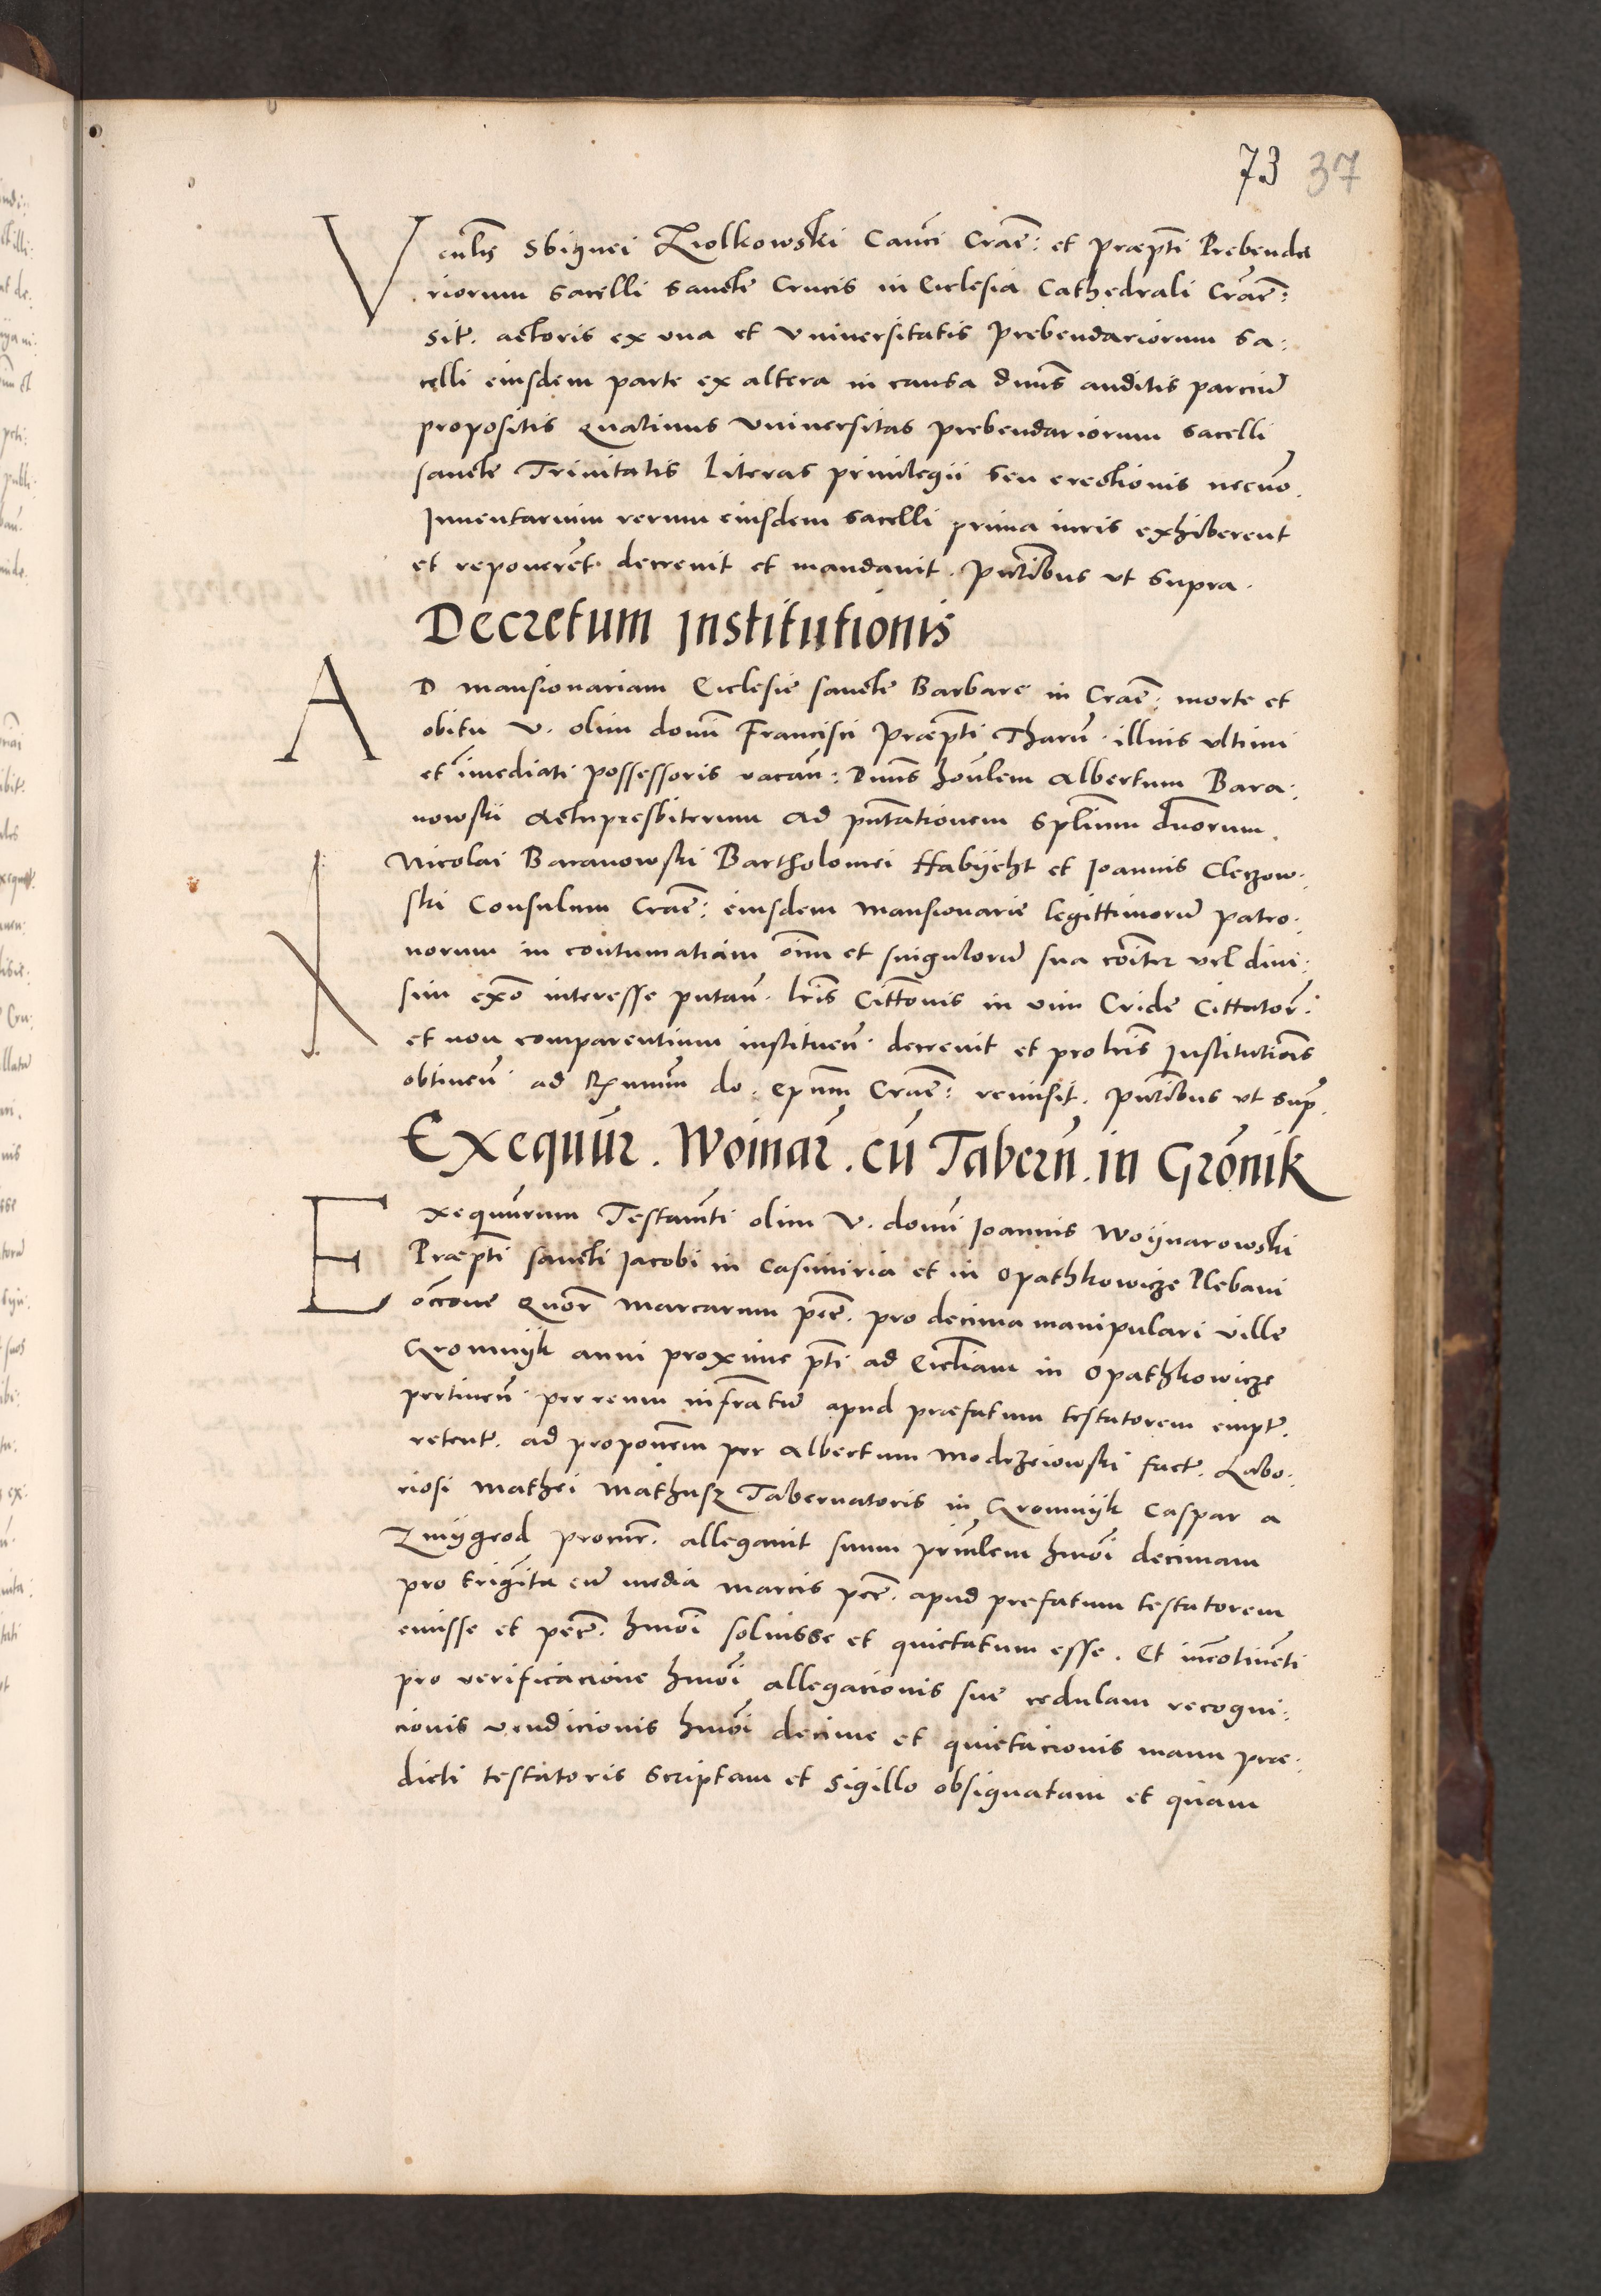 73 37
Venlis Sbignei Ziolkowski Canci Craẽ: et Præpti Prebenda
riorum sacelli sancte Crucis in Ecclesia Cathedrali Craẽ:
sit. actoris ex una et Universitatis prebendariorum sa:
celli eiusdem parte ex altera in causa dnus auditis parciũ
propositis quatinus Universitas prebendariorum sacelli
sancte Trinitatis literas privilegii seu erectionis necno.
Inventarium rerum eiusdem sacelli prima iuris exhiberent
et reponerẽt. decrevit et mandavit. Pntibus ut supra.
Decretum institutionis
AD mansionariam Ecclesie sancte Barbare in Craẽ: morte et
obitu V. olim domi Francisci Præpti Tharũ. illius ultimi
et imediati possessoris vacañ: Dnus honlem Albertum Bara:
nowski Actupresbiterum ad pntationem Splium dnorum.
Nicolai Baranowski Bartholomei Habyeht et Joannis Cleczow:
ski Consulum Craẽ: eiusdem mansionarie legittimorũ patro:
norum in contumatiam oim et singulorũ sua coiter vel divi:
sim exõ interesse putañ. lris Cittonis in vim Cride Cittator:
et non comparentium instituen̄. decrevit et pro lris Institutiõis
obtinen̄. ad Rmum do. epum Craẽ: remisit. Pntibus ut sup.
Exequũr. Woinar̃. cũ Taberñ. in Grõnik
Exequũrum Testamti olim V. domi Joannis Woynarowski
Præpti sancti Jacobi in Casimiria et in Opathkowicze Plebani
occone quor̃ marcarum pẽc. pro decima manipulari ville
Gromnyk anni proxime pti ad Eccliam in Opathkowicze
pertinen̄. per reum infratũ apud præfatum testatorem empt.
retent. ad proponem per Albertum Modrzeiowski fact. Labo:
riosi Mathei Mathusz Tabernatoris in Gromnyk Caspar a
Zmygrod procur̃. allegavit suum prinlem hmõi decimam
pro triginta cũ media marcis pẽc. apud prefatum testatorem
emisse et pẽc. hmõi solvisse et quietatum esse. Et incõtinẽti
pro verificacione hmõi allegacionis sue cedulam recogni:
cionis vendicionis hmõi decime et quietacionis manu præ:
dicti testatoris scriptam et sigillo obsignatam et quam